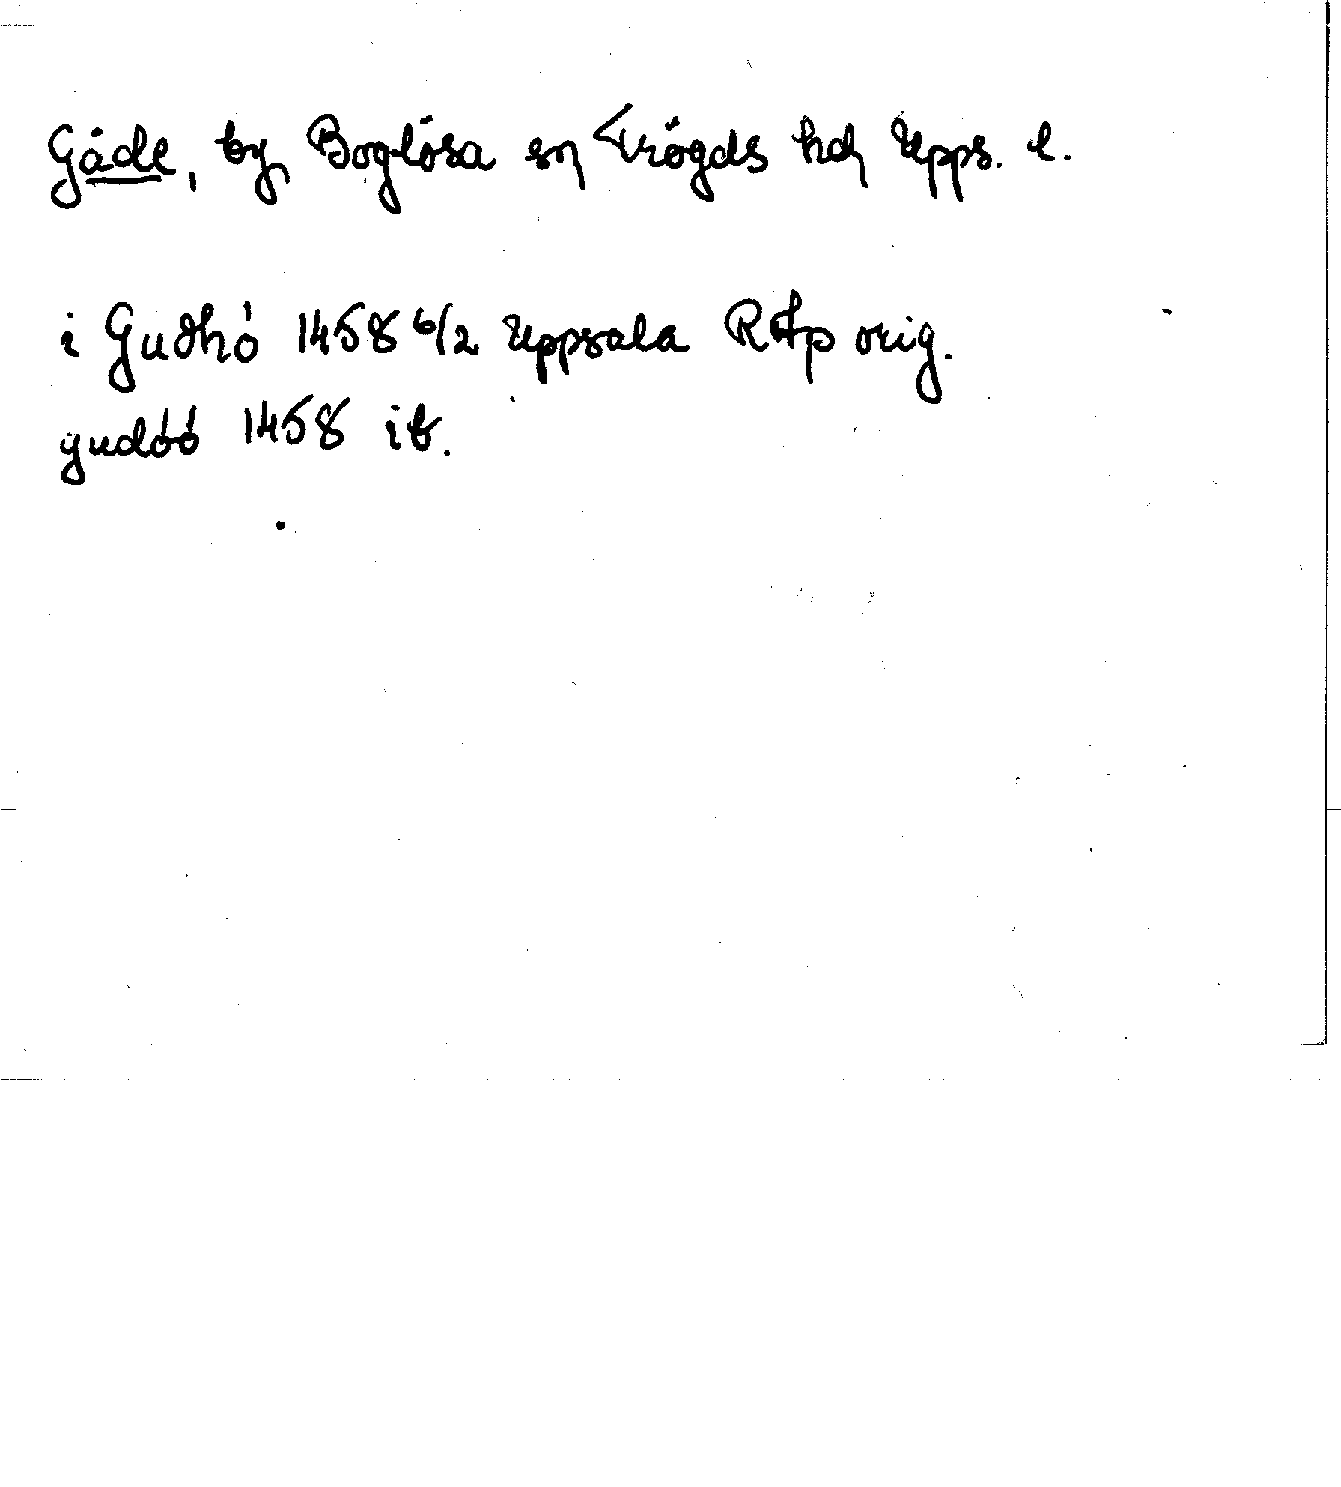 Gåde, by, Boglösa sn Trögds hd Upps. l.
i Gudhö 1458 6/2 Uppsala RAp orig.
gudöö 1458 ib.